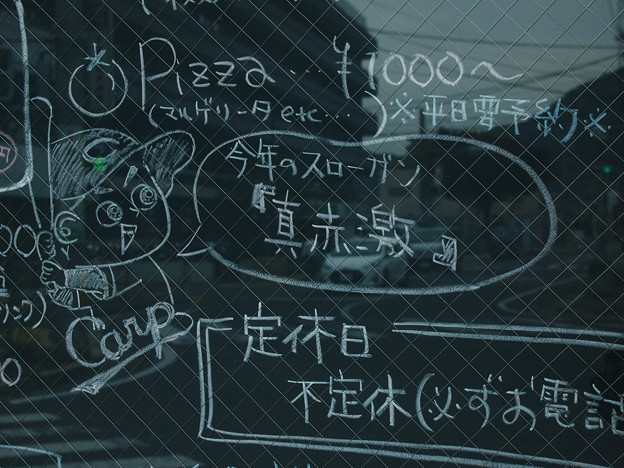 Pizza … ¥1000〜
(マルゲリータ etc… ) ※平日要予約※
今年のスローガン
『真赤激』
Carp
定休日
不定休(必ずお電話